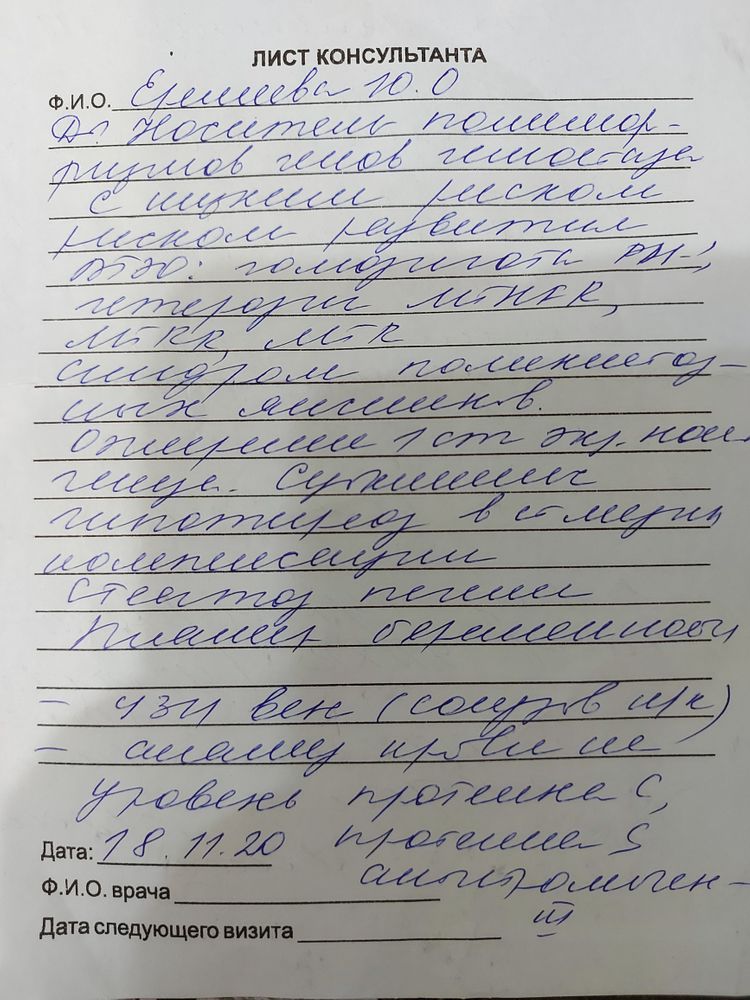 ЛИСТ КОНСУЛЬТАНТА
Ф.И.О. Ершева Ю.О
Ds. Носитель полимор-
физмов генов гемостаза
с низким риском
риском развития
ВТЭО: гомозигота PAI-1,
гетерозиг MTHFR,
MTRR, MTR
синдром поликистоз-
ных яичников.
Ожирение 1 ст экз. кон.
генеза. Субклинич
гипотиреоз в ст медик
компенсации
Стеатоз печени
Планир беременность
- УЗИ вен (сосудов н/к)
- анализ крови на
уровень протеина C,
Дата: 18.11.20 протеина S
антитромбин-
III
Ф.И.О. врача
Дата следующего визита